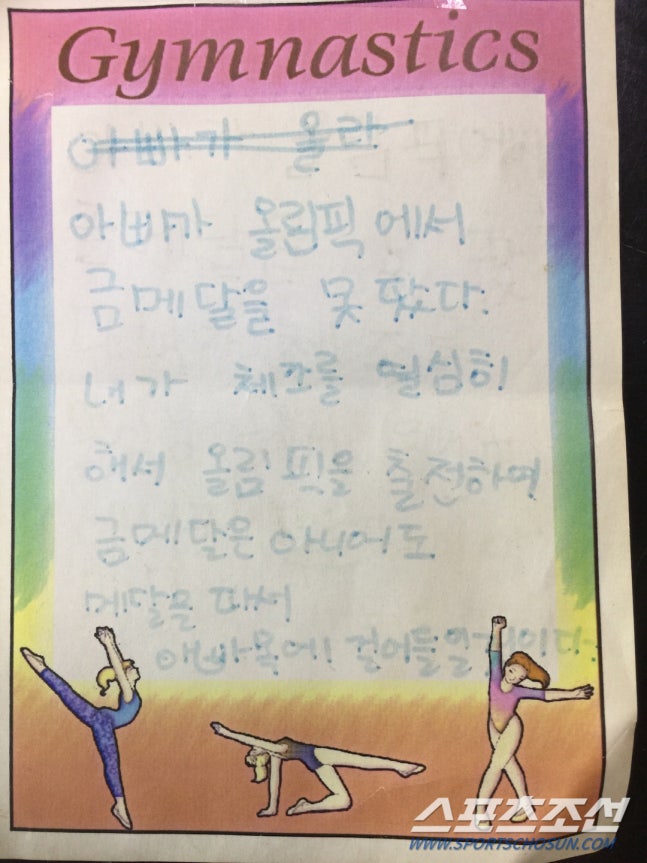 Gymnastics
아빠가 올라
아빠가 올림픽에서
금메달을 못 땄다.
내가 체조를 열심히
해서 올림픽을 출전하여
금메달은 아니어도
메달을 따서
아빠목에 걸어드릴것이다.
스포츠조선
WWW.SPORTSCHOSUN.COM